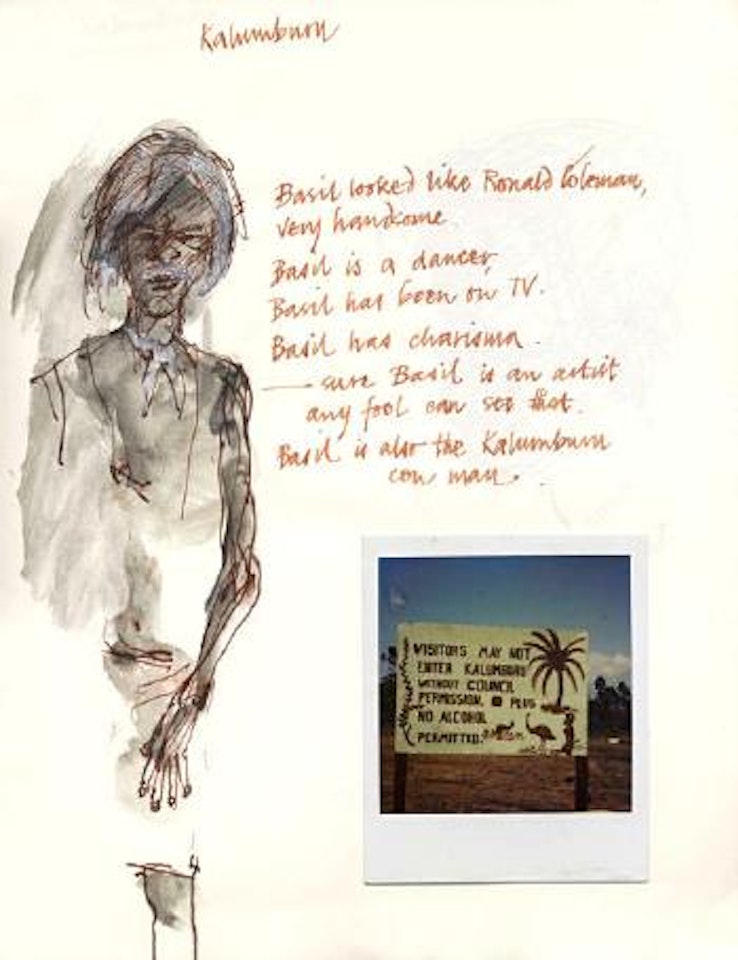 Kalumburu
Basil looked like Ronald Coleman,
very handsome.
Basil is a dancer,
Basil has been on TV.
Basil has charisma.
— sure Basil is an artist
any fool can see that.
Basil is also the Kalumburu
con man.
VISITORS MAY NOT
ENTER KALUMBURU
WITHOUT COUNCIL
PERMISSION. PLUS
NO ALCOHOL
PERMITTED.